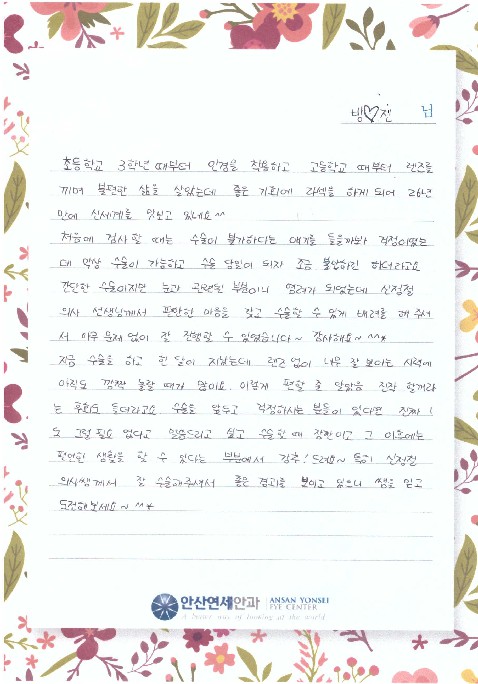 방♡진 님
초등학교 3학년 때부터 안경을 착용하고 고등학교 때부터 렌즈를
끼며 불편한 삶을 살았는데 좋은 기회에 라섹을 하게 되어 26년
만에 신세계를 맛보고 있네요^^
처음에 검사할 때는 수술이 불가하다는 얘기를 들을까봐 걱정이었는
데 막상 수술이 가능하고 수술 당일이 되자 조금 불안하긴 하더라고요
간단한 수술이지만 눈과 관련된 부분이니 염려가 되었는데 신정철
의사 선생님께서 편안한 마음을 갖고 수술할 수 있게 배려를 해 주셔
서 아무 문제 없이 잘 진행할 수 있었습니다~ 감사해요~ ^^*
지금 수술을 하고 한 달이 지났는데 렌즈 없이 너무 잘 보이는 시력에
아직도 깜짝 놀랄 때가 많아요. 이렇게 편할 줄 알았음 진작 할거라
는 후회도 들더라고요. 수술을 앞두고 걱정하시는 분들이 있다면 진짜!
도 그럴 필요 없다고 말씀드리고 싶고 수술할 때 잠깐이고 그 이후에는
편안한 생활을 할 수 있다는 부분에서 강추! 드려요~ 특히 신정철
의사쌤께서 잘 수술해주셔서 좋은 결과를 보이고 있으니 쌤을 믿고
도전해보세요~ ^^*
안산연세안과 ANSAN YONSEI
EYE CENTER
A better way of looking at the world